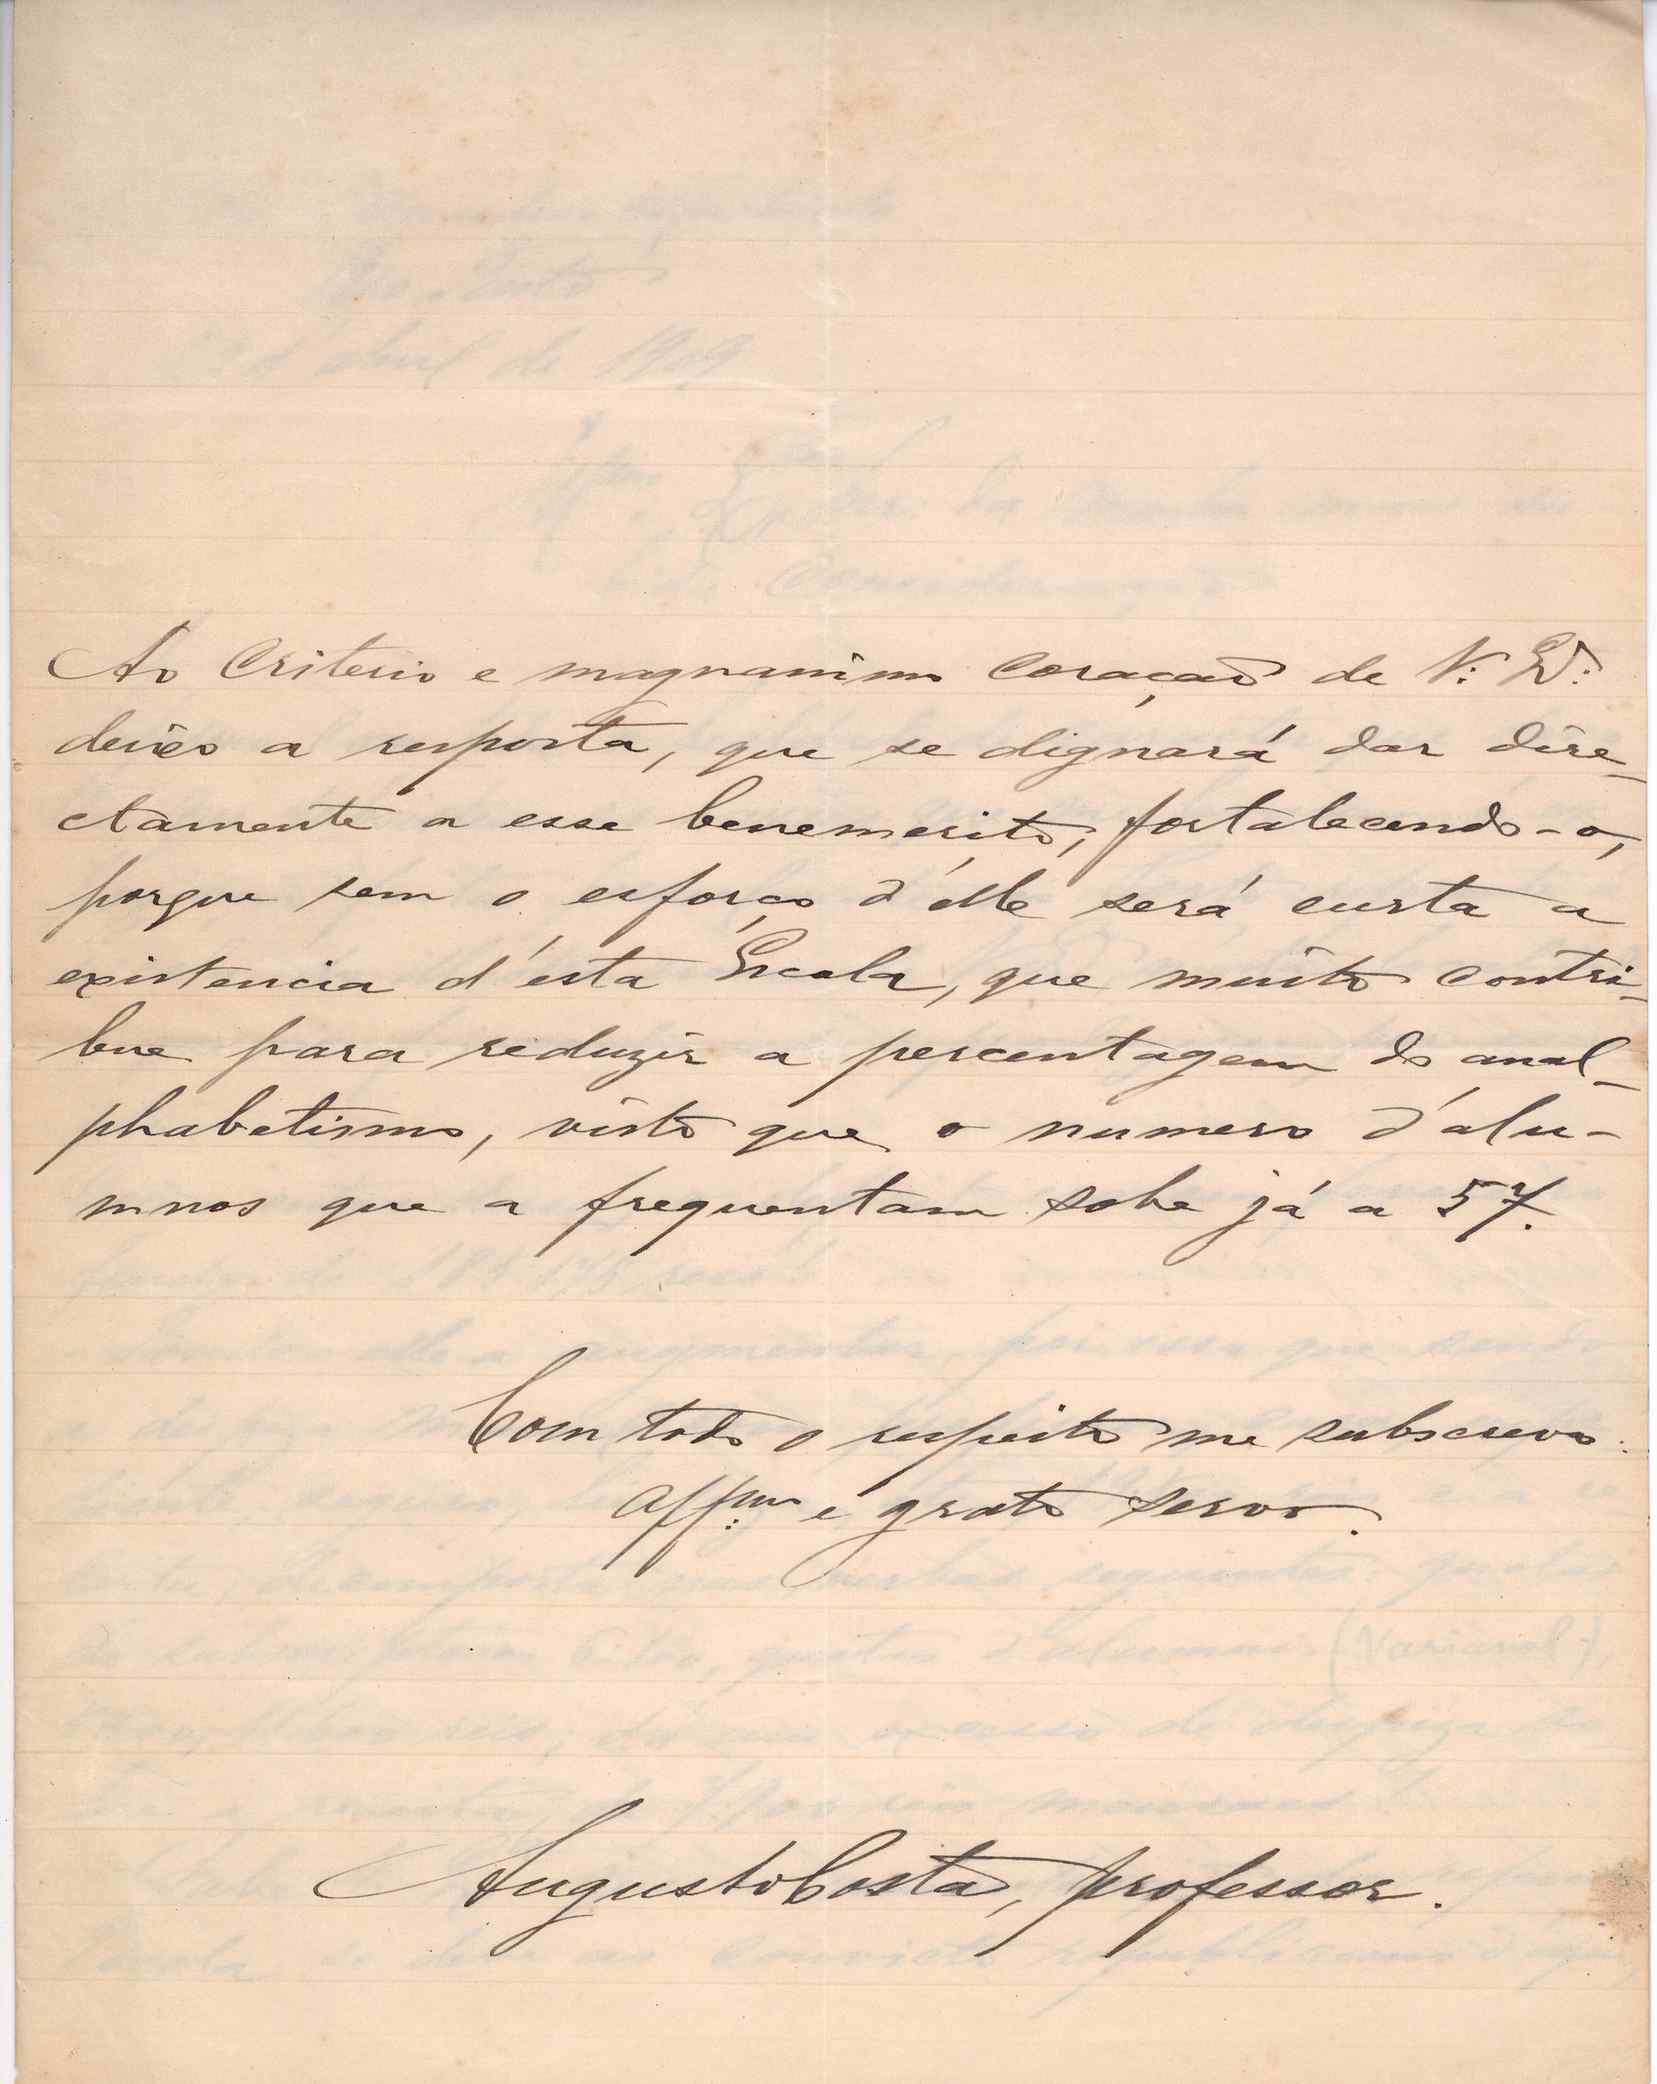 Ao criterio e magnanimo coração de V. Ex.
deixo a resposta, que se dignará dar dire-
ctamente a esse benemerito, fortalecendo-o,
porque sem o esforço d'élle será curta a
existencia d'ésta Escola, que muito contri-
bue para reduzir a percentagem do anal-
phabetismo, visto que o numero d'alu-
mnos que a frequentam sobe já a 57.
Com todo o respeito me subscrevo:
Aff.mo e grato servo.
Augusto Costa, professor.